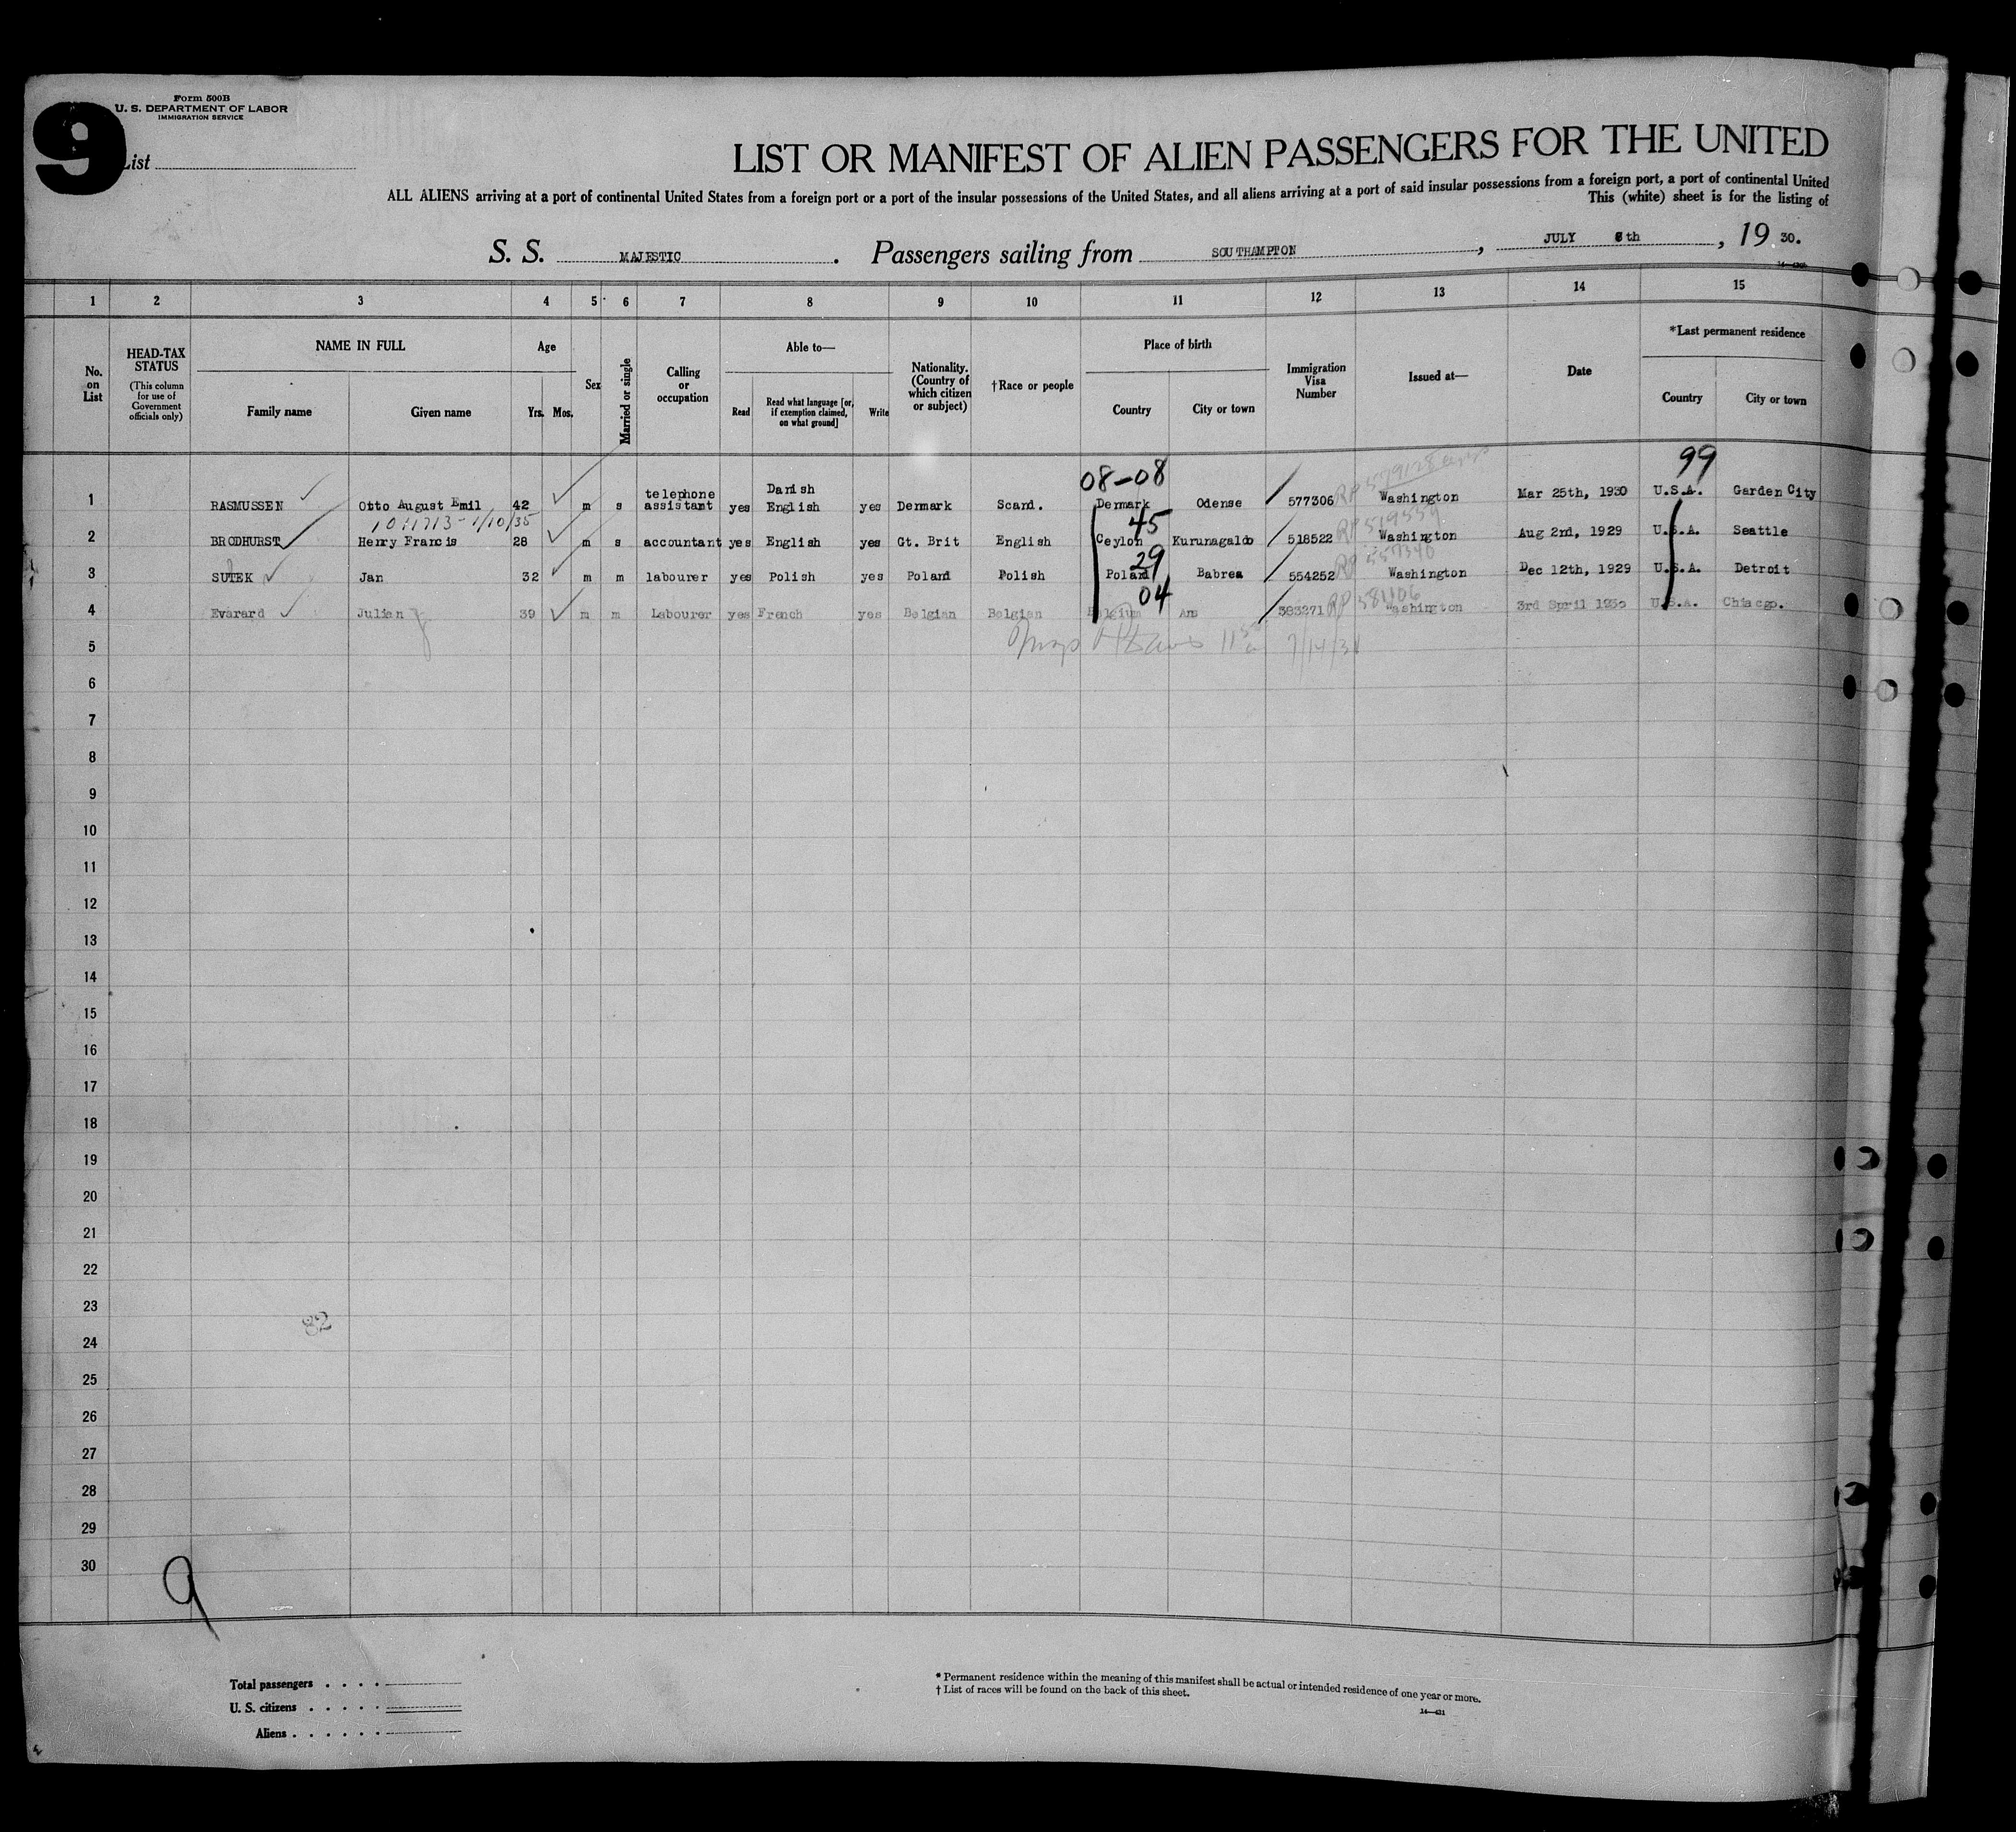 9
Form 500B
U. S. DEPARTMENT OF LABOR
IMMIGRATION SERVICE
List
LIST OR MANIFEST OF ALIEN PASSENGERS FOR THE UNITED
ALL ALIENS arriving at a port of continental United States from a foreign port or a port of the insular possessions of the United States, and all aliens arriving at a port of said insular possessions from a foreign port, a port of continental United
This (white) sheet is for the listing of
S. S. MAJESTIC. Passengers sailing from SOUTHAMPTON, JULY th, 19 30.
1 2 3 4 5 6 7 8 9 10 11 12 13 14 15
No. on List
HEAD-TAX STATUS (This column for use of Government officials only)
NAME IN FULL Family name Given name
Age Yrs. Mos.
Sex
Married or single
Calling or occupation
Able to— Read Read what language [or, if exemption claimed, on what ground] Write
Nationality. (Country of which citizen or subject)
†Race or people
Place of birth Country City or town
Immigration Visa Number
Issued at—
Date
*Last permanent residence Country City or town
08-08 99
1 RASMUSSEN Otto August Emil 42 m s telephone assistant yes Danish English yes Denmark Scand. Denmark Odense 577306 Washington Mar 25th, 1930 U.S.A. Garden City
1/10/35 45
2 BRODHURST Henry Francis 28 m s accountant yes English yes Gt. Brit English Ceylon Kurunagaldo 518522 Washington Aug 2nd, 1929 U.S.A. Seattle
29
3 SUTEK Jan 32 m m labourer yes Polish yes Poland Polish Poland Babrea 554252 Washington Dec 12th, 1929 U.S.A. Detroit
04
4 Evarard Julian 39 m m Labourer yes French yes Belgian Belgian Belgium Ans 383271 Washington 3rd April 1930 U.S.A. Chiacgo.
5 7/14/30
6
7
8
9
10
11
12
13
14
15
16
17
18
19
20
21
22
23
82
24
25
26
27
28
29
30
9
Total passengers . . . .
U. S. citizens . . . . .
Aliens . . . . . .
* Permanent residence within the meaning of this manifest shall be actual or intended residence of one year or more.
† List of races will be found on the back of this sheet.